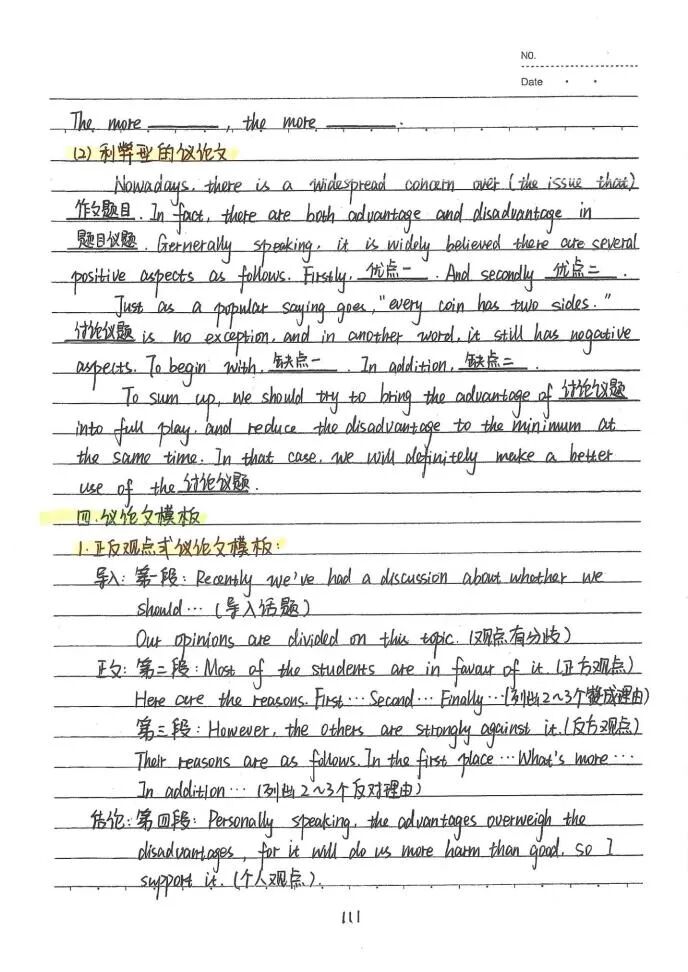 NO.
Date
The more ________, the more ________.
(2) 利弊型的议论文
Nowadays, there is a widespread concern over (the issue that)
作文题目. In fact, there are both advantage and disadvantage in
题目议题. Gernerally speaking, it is widely believed there are several
positive aspects as follows. Firstly, 优点一. And secondly 优点二.
Just as a popular saying goes, "every coin has two sides."
讨论议题 is no exception, and in another word, it still has negative
aspects. To begin with, 缺点一. In addition, 缺点二.
To sum up, we should try to bring the advantage of 讨论议题
into full play, and reduce the disadvantage to the minimum at
the same time. In that case, we will definitely make a better
use of the 讨论议题.
四.议论文模板
1.正反观点式议论文模板:
导入: 第一段: Recently we've had a discussion about whether we
should… (导入话题)
Our opinions are divided on this topic. (观点有分歧)
正文: 第二段: Most of the students are in favour of it. (正方观点)
Here are the reasons. First… Second… Finally… (列出2~3个赞成理由)
第三段: However, the others are strongly against it. (反方观点)
Their reasons are as follows. In the first place… What's more…
In addition… (列出2~3个反对理由)
结论: 第四段: Personally speaking, the advantages overweigh the
disadvantages, for it will do us more harm than good, so I
support it. (个人观点).
111